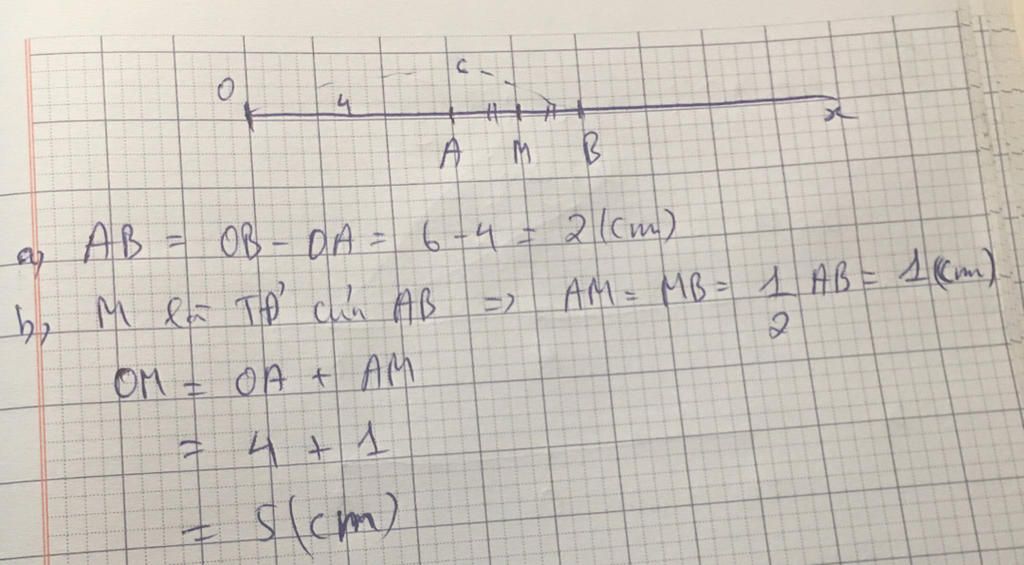 O 4 6
A M B x
a, AB = OB - OA = 6 - 4 = 2 (cm)
b, M là TĐ' của AB => AM = MB = 1/2 AB = 1 (cm)
OM = OA + AM
= 4 + 1
= 5 (cm)